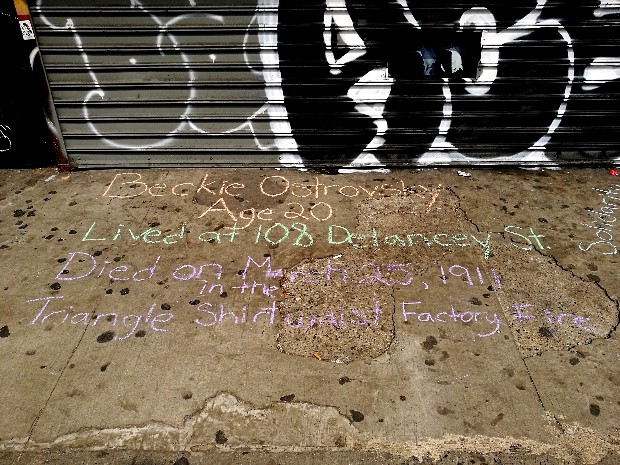 Beckie Ostrovsky
Age 20
Lived at 108 Delancey St.
Died on March 25, 1911
in the
Triangle Shirtwaist Factory Fire